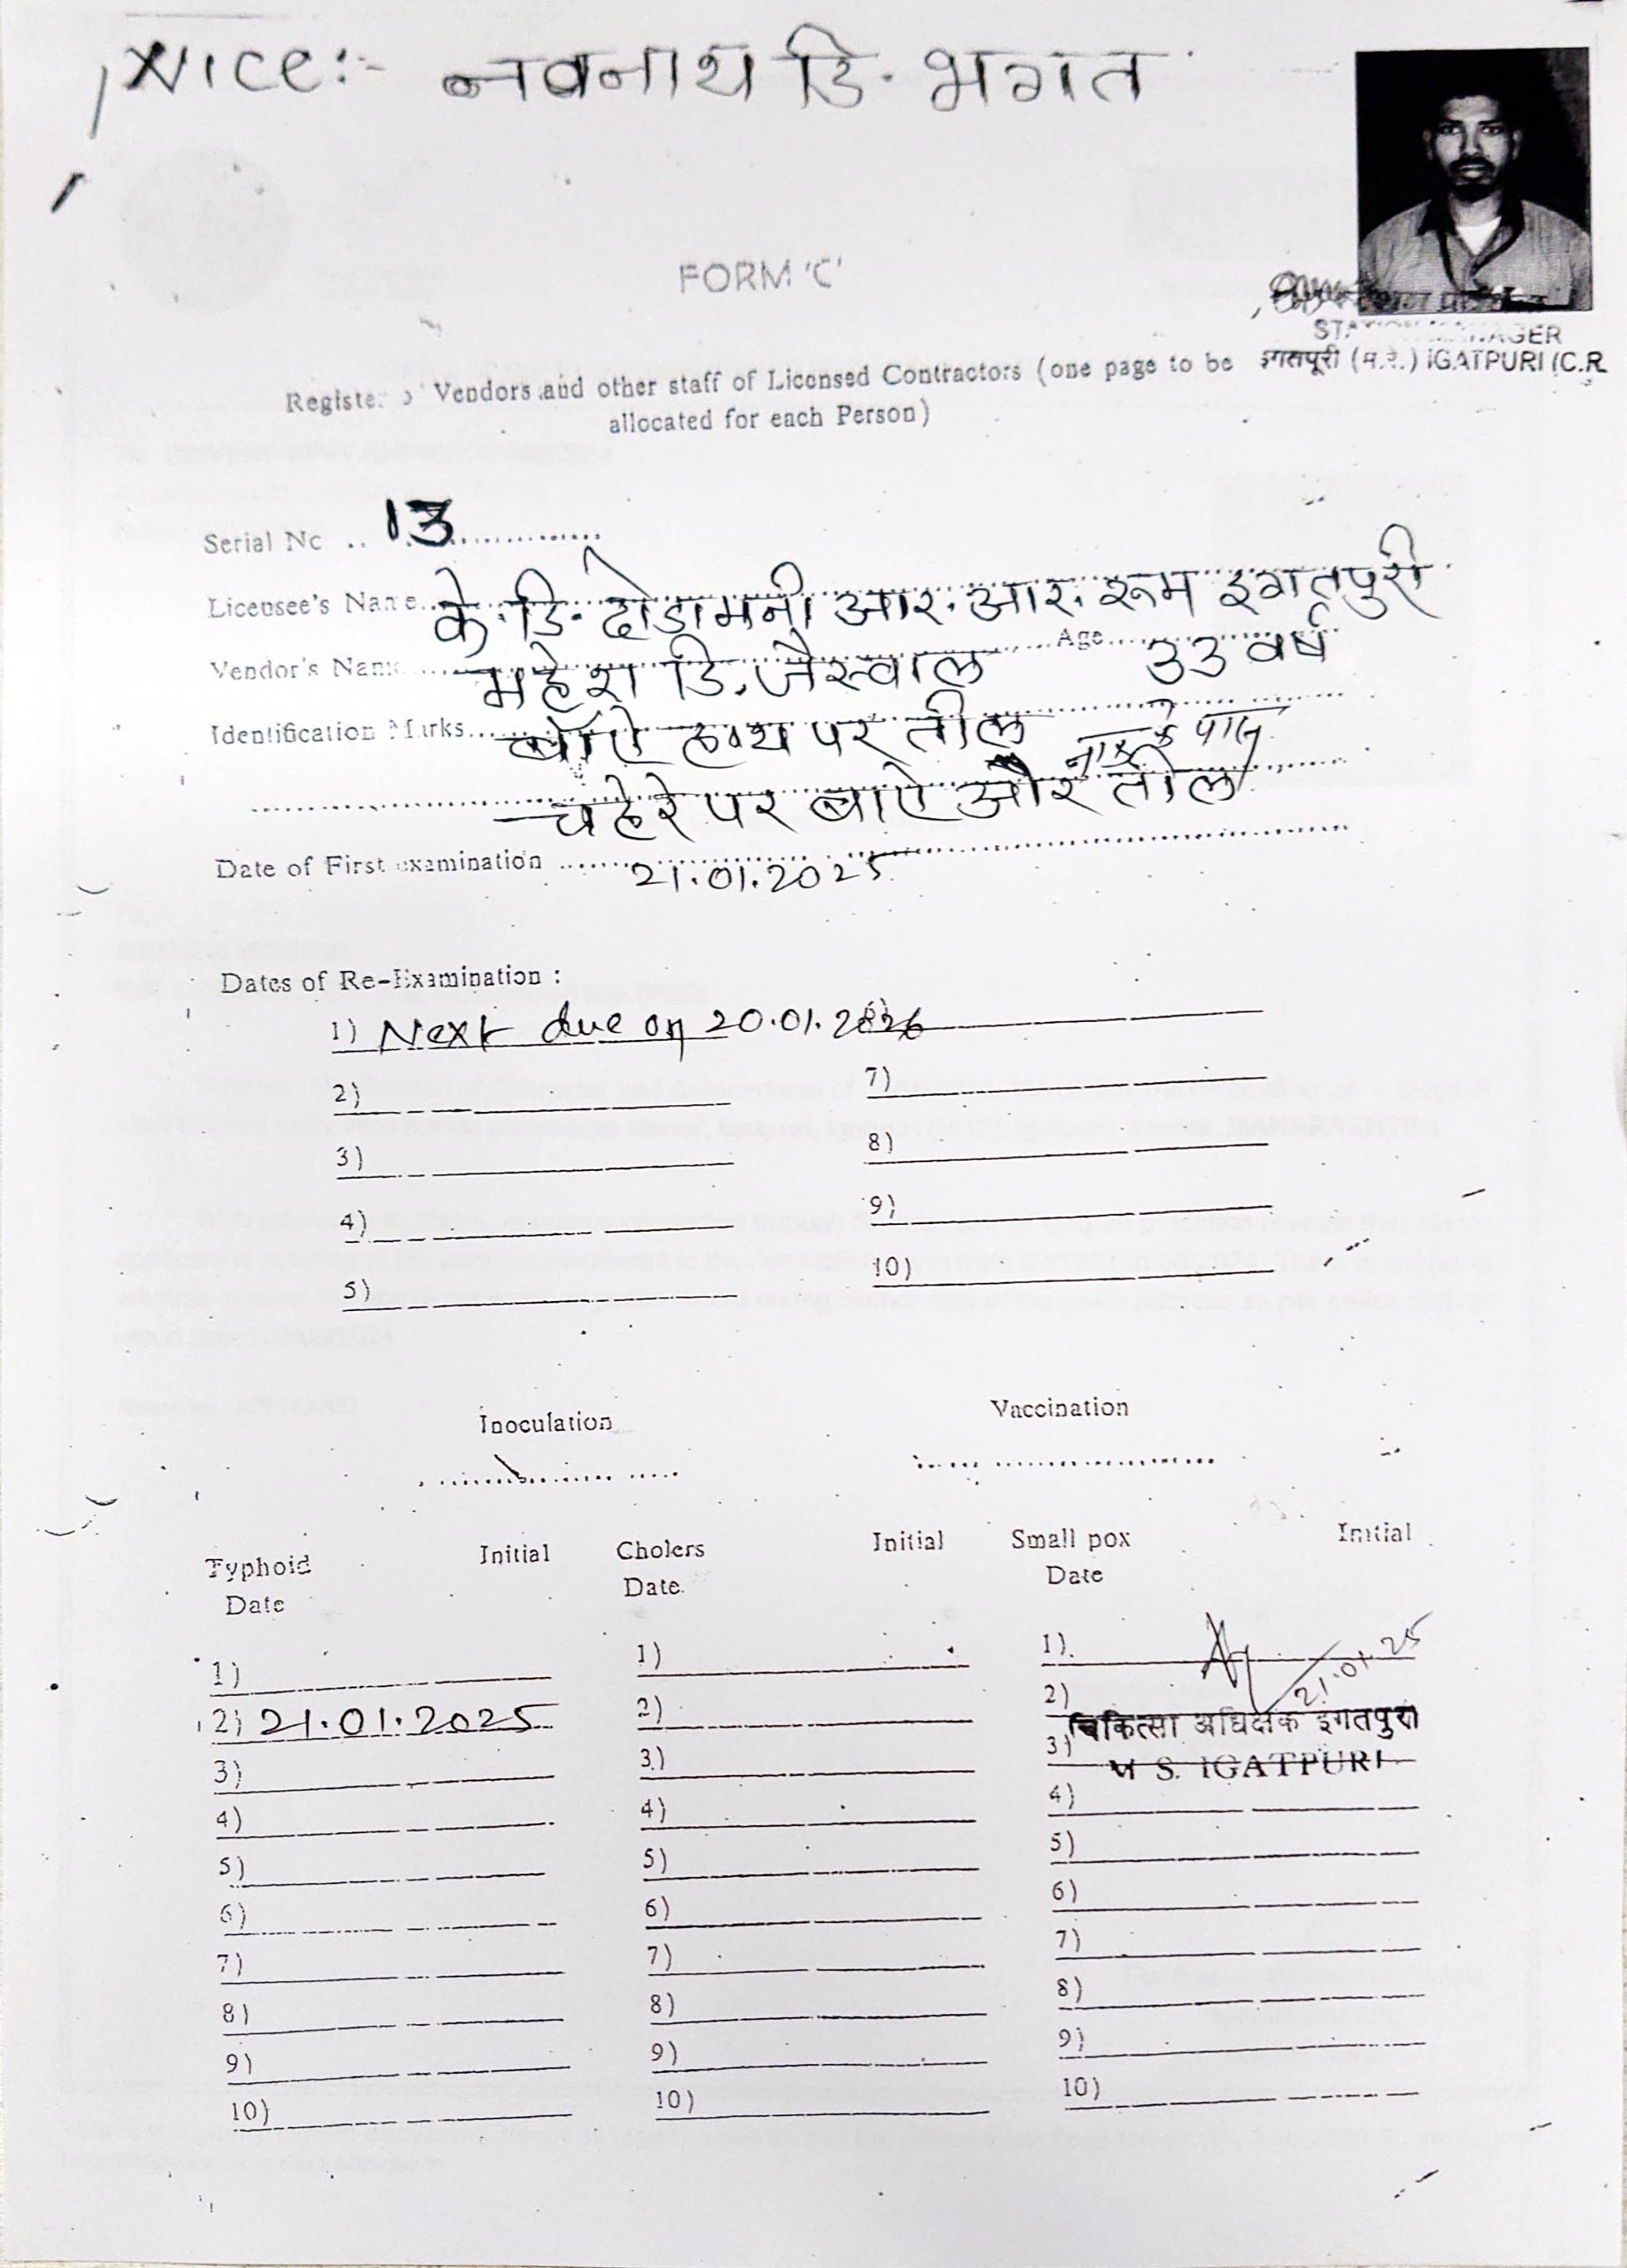 Nice:- नवनाथ डि. भगत
FORM 'C'
STATION MANAGER
इगतपूरी (म.रे.) IGATPURI (C.R.
Register of Vendors and other staff of Licensed Contractors (one page to be
allocated for each Person)
Serial No .. 13
Licensee's Name.. के. डि. दोडामनी आर. आर. रूम इगतपुरी
Vendor's Name महेश डि. जैस्वाल Age 33 वर्ष
Identification Marks बाँऐ हाथ पर तील
नाक के पास
चहेरे पर बाऐ और तील
Date of First examination 21.01.2025
Dates of Re-Examination :
1) Next due on 20.01.2026
2) 7)
3) 8)
4) 9)
5) 10)
Inoculation Vaccination
Typhoid Initial Cholers Initial Small pox Initial
Date Date Date
1) 1) 1) 21.01.25
2) 21.01.2025 2) 2)
चिकित्सा अधिक्षक इगतपुरी
3) 3) 3) M S. IGATPURI
4) 4) 4)
5) 5) 5)
6) 6) 6)
7) 7) 7)
8) 8) 8)
9) 9) 9)
10) 10) 10)